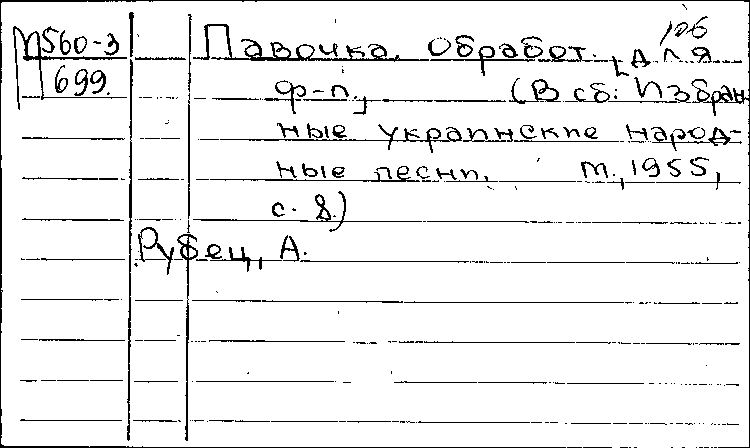 106
М560-3 Павочка. Обработ. [для
699. ф-п.] (В сб: Избран-
ные украинские народ-
ные песни. М., 1955,
с. 8.)
Рубец, А.